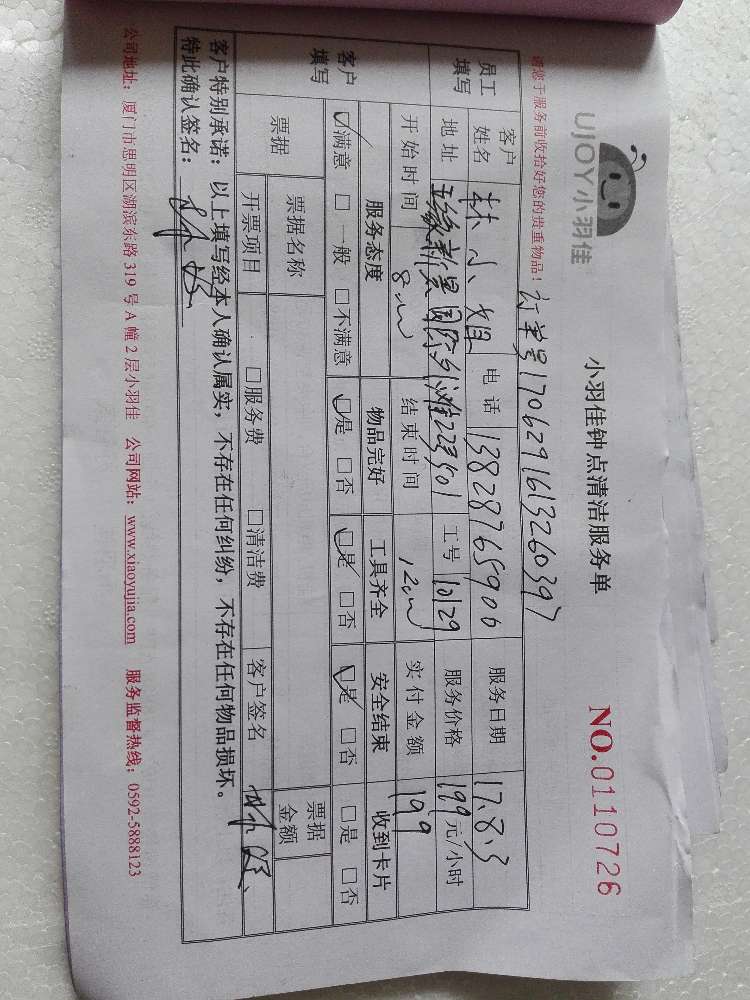 UJOY小羽佳
小羽佳钟点清洁服务单
NO.0110726
请您于服务前收拾好您的贵重物品！
订单号1706291613260397
员工填写 客户姓名 林小姐 电话 13828765906 服务日期 17.8.3
地址 新景国际外滩223501 工号 10129 服务价格 199元/小时
开始时间 8:00 结束时间 12:00 实付金额 199
客户填写 服务态度 物品完好 工具齐全 安全结束 收到卡片
☑满意 □一般 □不满意 ☑是 □否 ☑是 □否 ☑是 □否 □是 □否
票据 票据名称 票据金额
开票项目 □服务费 □清洁费 客户签名
客户特别承诺：以上填写经本人确认属实，不存在任何纠纷，不存在任何物品损坏。
特此确认签名：
公司地址：厦门市思明区湖滨东路 319 号 A 幢 2 层小羽佳 公司网站：www.xiaoyujia.com 服务监督热线：0592-5888123